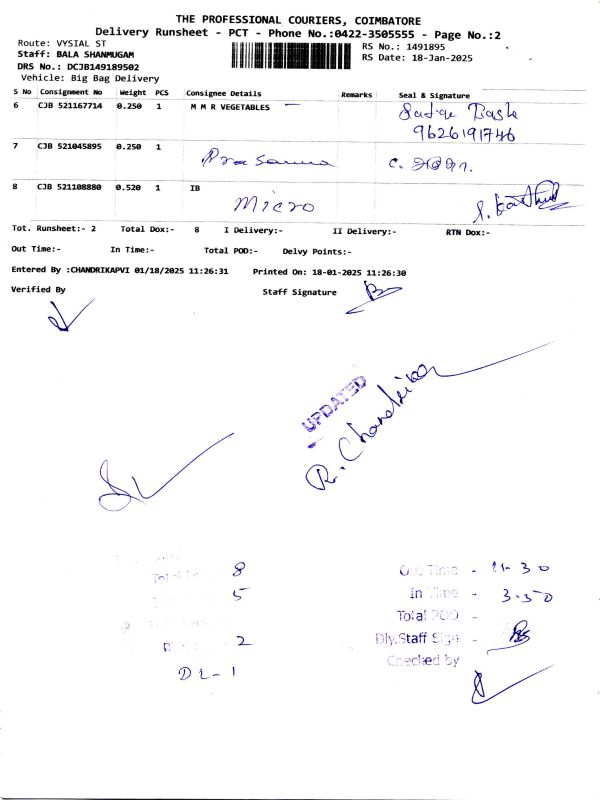 THE PROFESSIONAL COURIERS, COIMBATORE
Delivery Runsheet - PCT - Phone No.:0422-3505555 - Page No.:2
Route: VYSIAL ST
RS No.: 1491895
Staff: BALA SHANMUGAM
RS Date: 18-Jan-2025
DRS No.: DCJB149189502
Vehicle: Big Bag Delivery
S No Consignment No Weight PCS Consignee Details Remarks Seal & Signature
6 CJB 521167714 0.250 1 M M R VEGETABLES
9626191746
7 CJB 521045895 0.250 1
Prasanna
8 CJB 521108880 0.520 1 IB
Micro
Tot. Runsheet:- 2 Total Dox:- 8 I Delivery:- II Delivery:- RTN Dox:-
Out Time:- In Time:- Total POD:- Delvy Points:-
Entered By :CHANDRIKAPVI 01/18/2025 11:26:31 Printed On: 18-01-2025 11:26:30
Verified By Staff Signature
UPDATED
R. Chandrika
8
Out Time - 11-30
5
In Time - 3.50
Total POD -
2
Dly.Staff Sign -
DL-1
Checked by